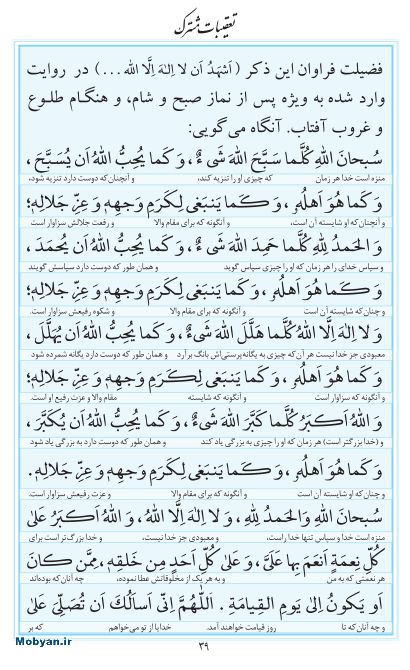 تعقیبات مشترک
فضیلت فراوان این ذکر (اَشهَدُ اَن لا اِلهَ اِلَّا الله...) در روایت
وارد شده به ویژه پس از نماز صبح و شام، و هنگام طلوع
و غروب آفتاب. آنگاه می‌گویی:
سُبحانَ اللهِ کُلَّما سَبَّحَ اللهَ شَیءٌ، وَ کَما یُحِبُّ اللهُ اَن یُسَبَّحَ،
منزه است خدا هر زمان که چیزی او را تنزیه کند، و آنچنان‌که دوست دارد تنزیه شود،
وَ کَما هُوَ اَهلُهُ، وَ کَما یَنبَغی لِکَرَمِ وَجهِهِ وَ عِزِّ جَلالِهِ؛
و آنچنان که او شایسته آن است، و آنگونه که برای مقام والا و رفعت جلالش سزاوار است
وَ الحَمدُ لِلّهِ کُلَّما حَمِدَ اللهَ شَیءٌ، وَ کَما یُحِبُّ اللهُ اَن یُحمَدَ،
و سپاس خدای را هر زمان که او را چیزی سپاس گوید و همان طور که دوست دارد سپاسش گویند
وَ کَما هُوَ اَهلُهُ، وَ کَما یَنبَغی لِکَرَمِ وَجهِهِ وَ عِزِّ جَلالِهِ؛
و چنان که شایسته آن است و آنگونه که برای مقام والا و شکوه رفیعش سزاوار است.
وَ لا اِلهَ اِلَّا اللهُ کُلَّما هَلَّلَ اللهَ شَیءٌ، وَ کَما یُحِبُّ اللهُ اَن یُهَلَّلَ،
معبودی جز خدا نیست هر آن که چیزی به یگانه پرستی‌اش بانگ برآرد و همان طور که دوست دارد یگانه شمرده شود
وَ کَما هُوَ اَهلُهُ، وَ کَما یَنبَغی لِکَرَمِ وَجهِهِ وَ عِزِّ جَلالِهِ؛
و آنگونه که سزاوار است و آنگونه که شایسته مقام والا و عزت رفیع او است.
وَ اللهُ اَکبَرُ کُلَّما کَبَّرَ اللهَ شَیءٌ، وَ کَما یُحِبُّ اللهُ اَن یُکَبَّرَ،
و (خدا بزرگتر است) هر زمان که او را چیزی به بزرگی یاد کند و همان طور که دوست دارد به بزرگی یاد شود
وَ کَما هُوَ اَهلُهُ، وَ کَما یَنبَغی لِکَرَمِ وَجهِهِ وَ عِزِّ جَلالِهِ.
و چنان که او شایسته آن است و آنگونه که برای مقام والا و عزت رفیعش سزاوار است.
سُبحانَ اللهِ وَ الحَمدُ لِلّهِ، وَ لا اِلهَ اِلَّا اللهُ، وَ اللهُ اَکبَرُ عَلی
منزه است خدا و سپاس تنها خدا راست، و معبودی جز خدا نیست، و خدا بزرگ‌تر است برای
کُلِّ نِعمَةٍ اَنعَمَ بِها عَلَیَّ، وَ عَلی کُلِّ اَحَدٍ مِن خَلقِهِ، مِمَّن کانَ
هر نعمتی که به من و به هر یک از مخلوقاتش عطا نموده، چه آنان که بوده‌اند
اَو یَکُونُ اِلی یَومِ القِیامَةِ. اَللّهُمَّ اِنّی اَسأَلُکَ اَن تُصَلِّیَ عَلی
و چه آنان که تا روز قیامت خواهند آمد. خدایا از تو می‌خواهم که بر
Mobyan.ir
۳۹